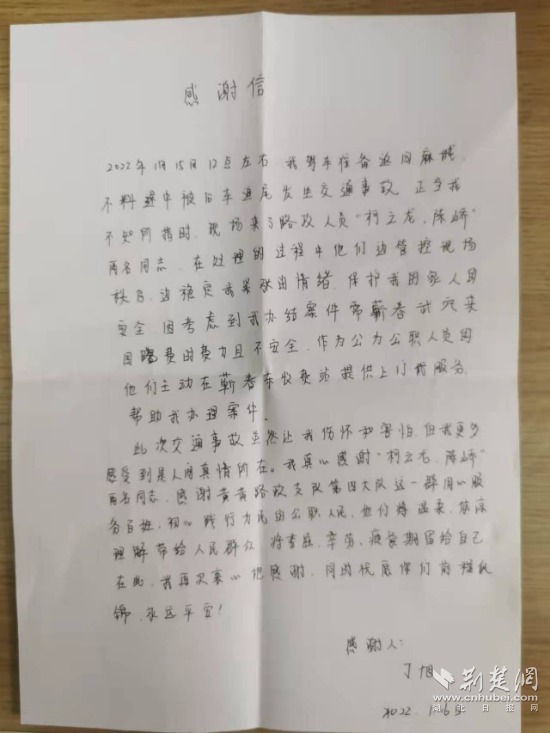 感谢信
2022年1月15日12点左右 我驾车准备返回麻城,
不料途中被后车追尾发生交通事故 正当我
不知所措时,现场来了路政人员“柯立龙、陈峤”
两名同志、在处理的过程中他们边管控现场
秩序,边稳定我 情绪,保护我因家人身
安全 因考虑到我办结案件需蕲春武穴来
回 费时费力且不安全、作为公 公职人员
他们主动在蕲春东收费站提供上门 服务
帮助我办理案件。
此次交通事故虽然让我伤怀和害怕,但我更多
感受到是人间真情所在。我真心感谢“柯立龙、陈峤”
两名同志,感谢黄黄路政支队第四大队这一群用心服
务百姓,初心践行为民的公职人员,他们将温柔、
理解带给人民群众 将 、辛劳、疲 留给自己
在此,我再次衷心地感谢,同时祝愿你们前程似
锦、永远平安!
感谢人:
丁旭
2022.1.16
荆楚网
www.cnhubei.com
湖北日报网